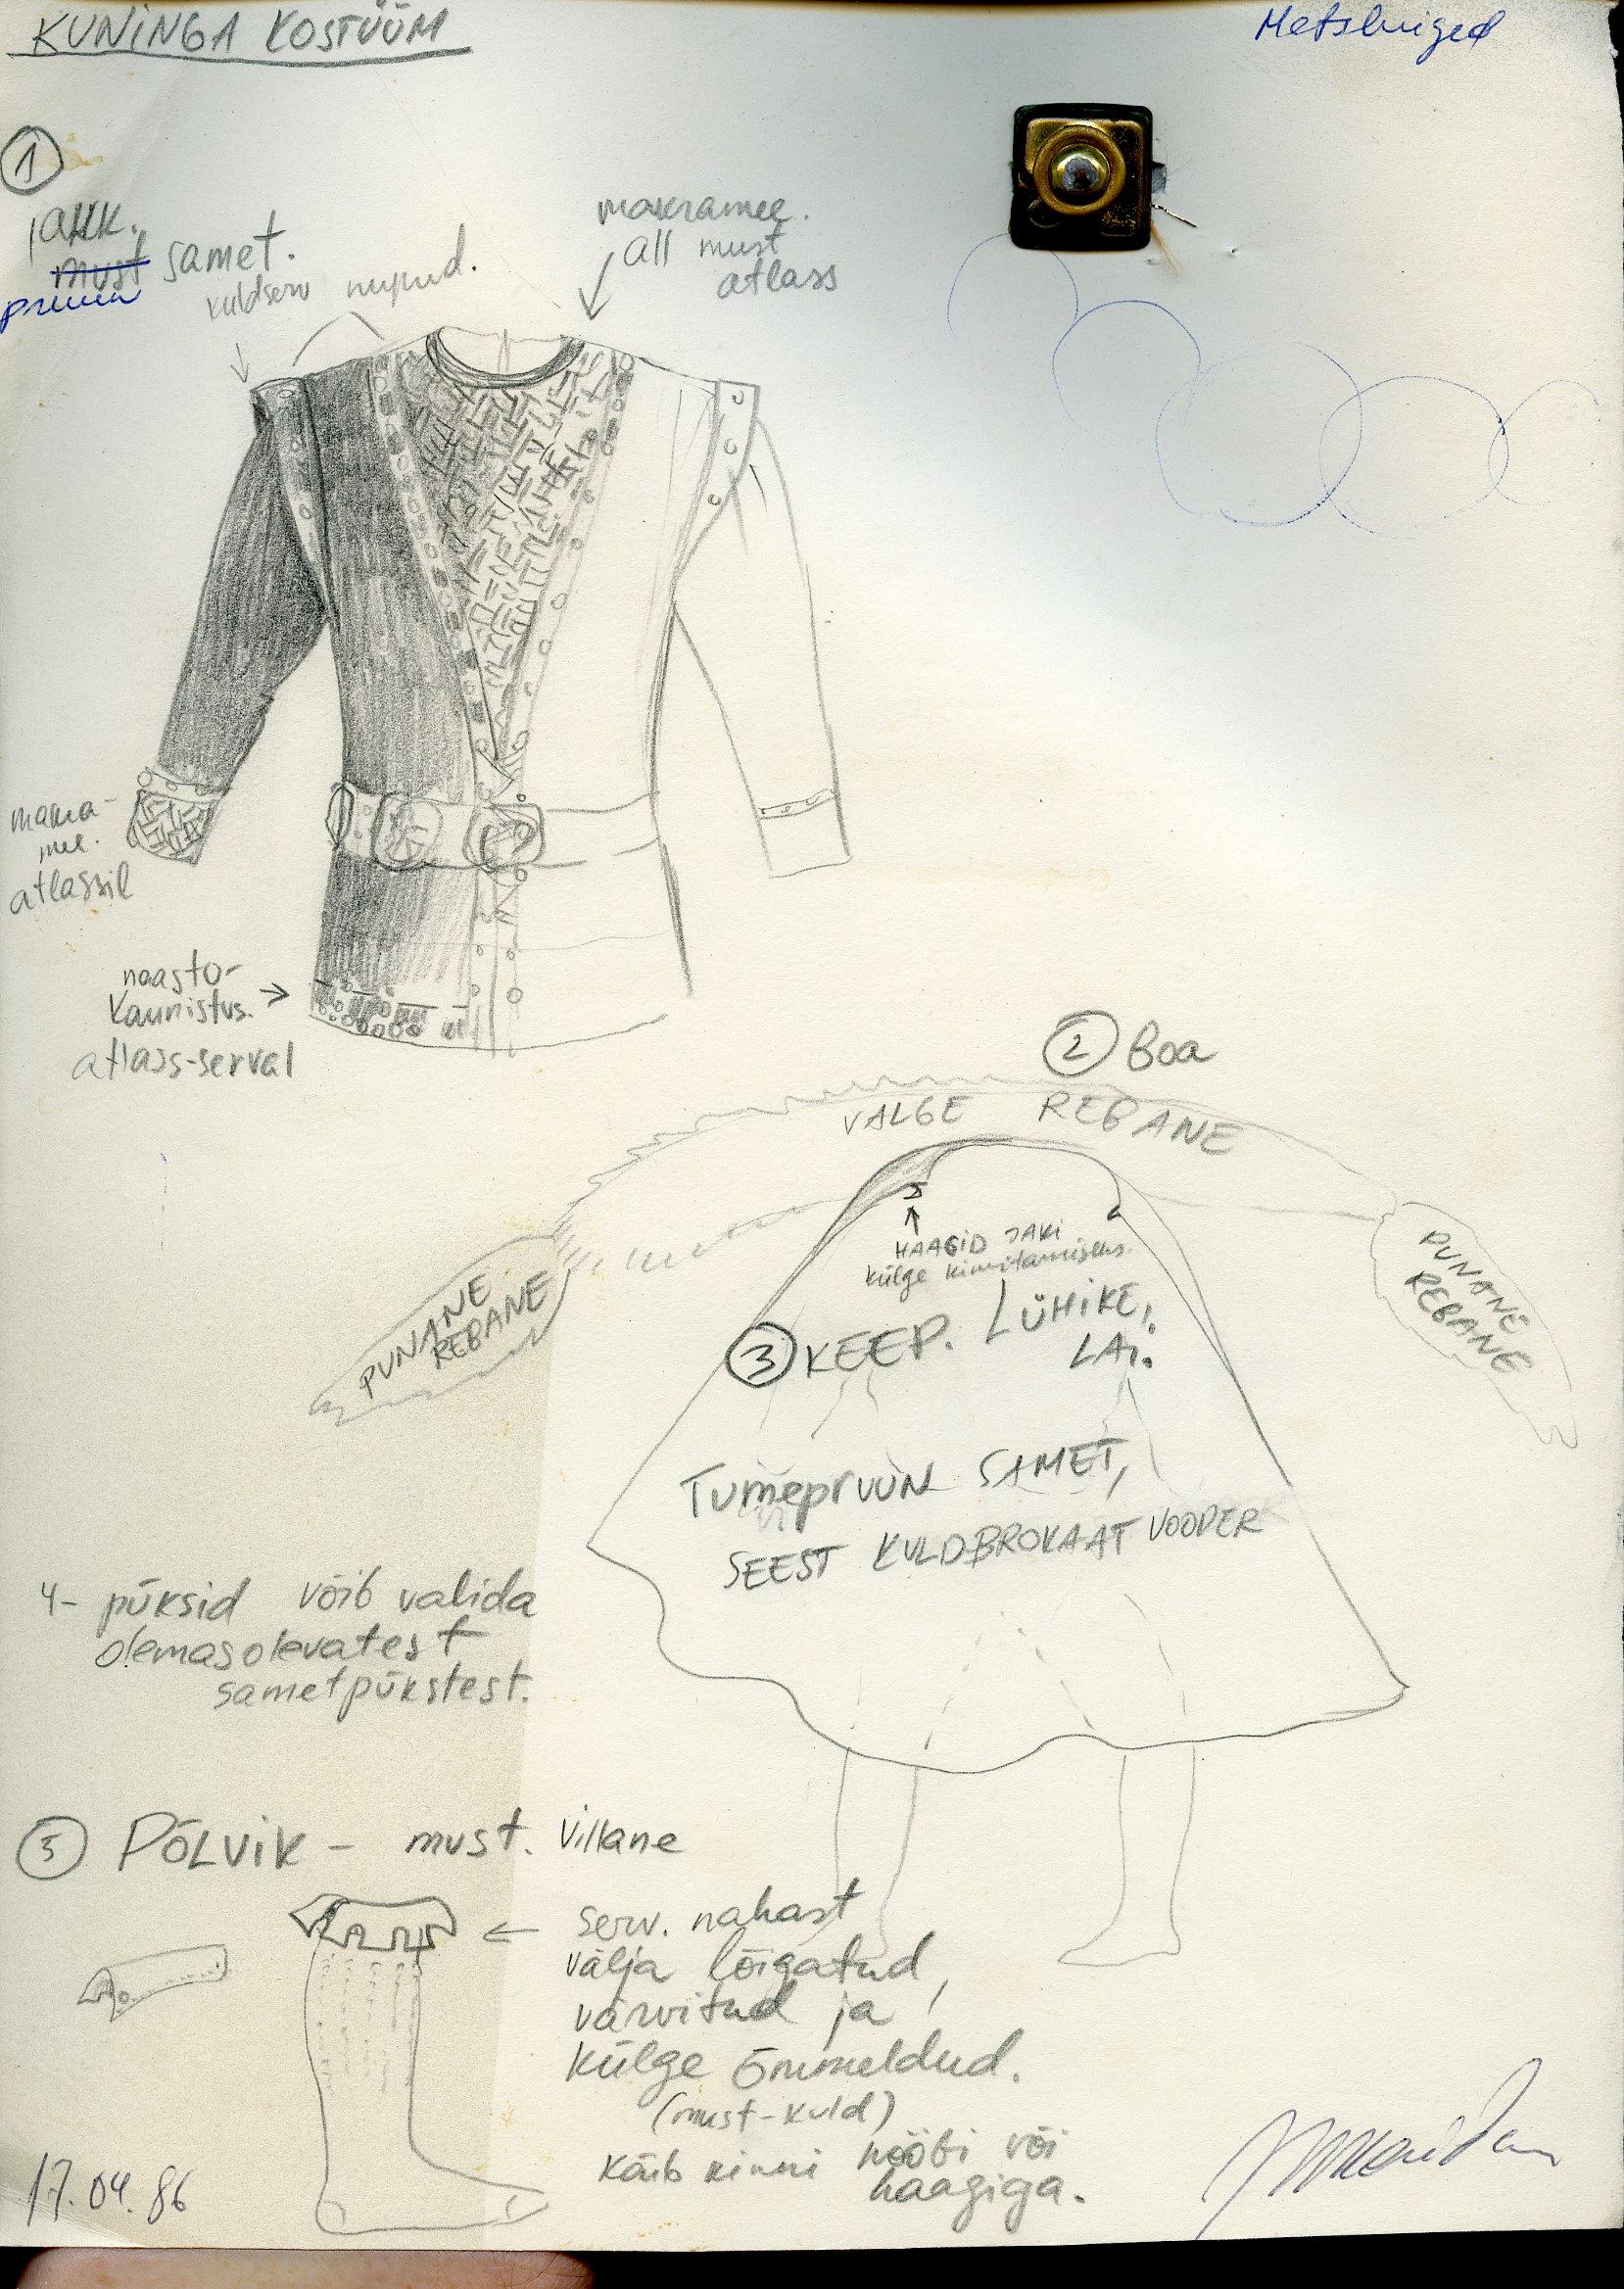 KUNINGA KOSTÜÜM
Metsluiged
1
JAKK.
must samet.
pruun
kuldserv nupud.
makramee.
all must
atlass
makra-
mee.
atlassil
naasto-
kaunistus.
atlass-serval
2 Boa
VALGE REBANE
PUNANE
REBANE
PUNANE
REBANE
HAAGID JAKI
külge kinnitamiseks.
3 KEEP. LÜHIKE,
LAI.
TUMEPRUUN SAMET,
SEEST KULDBROKAAT VOODER
4- püksid võib valida
olemasolevatest
sametpükstest.
5 PÕLVIK - must. villane
serv. nahast
välja lõigatud,
värvitud ja
külge õmmeldud.
(must-kuld)
Käib kinni nööbi või
haagiga.
17.04.86